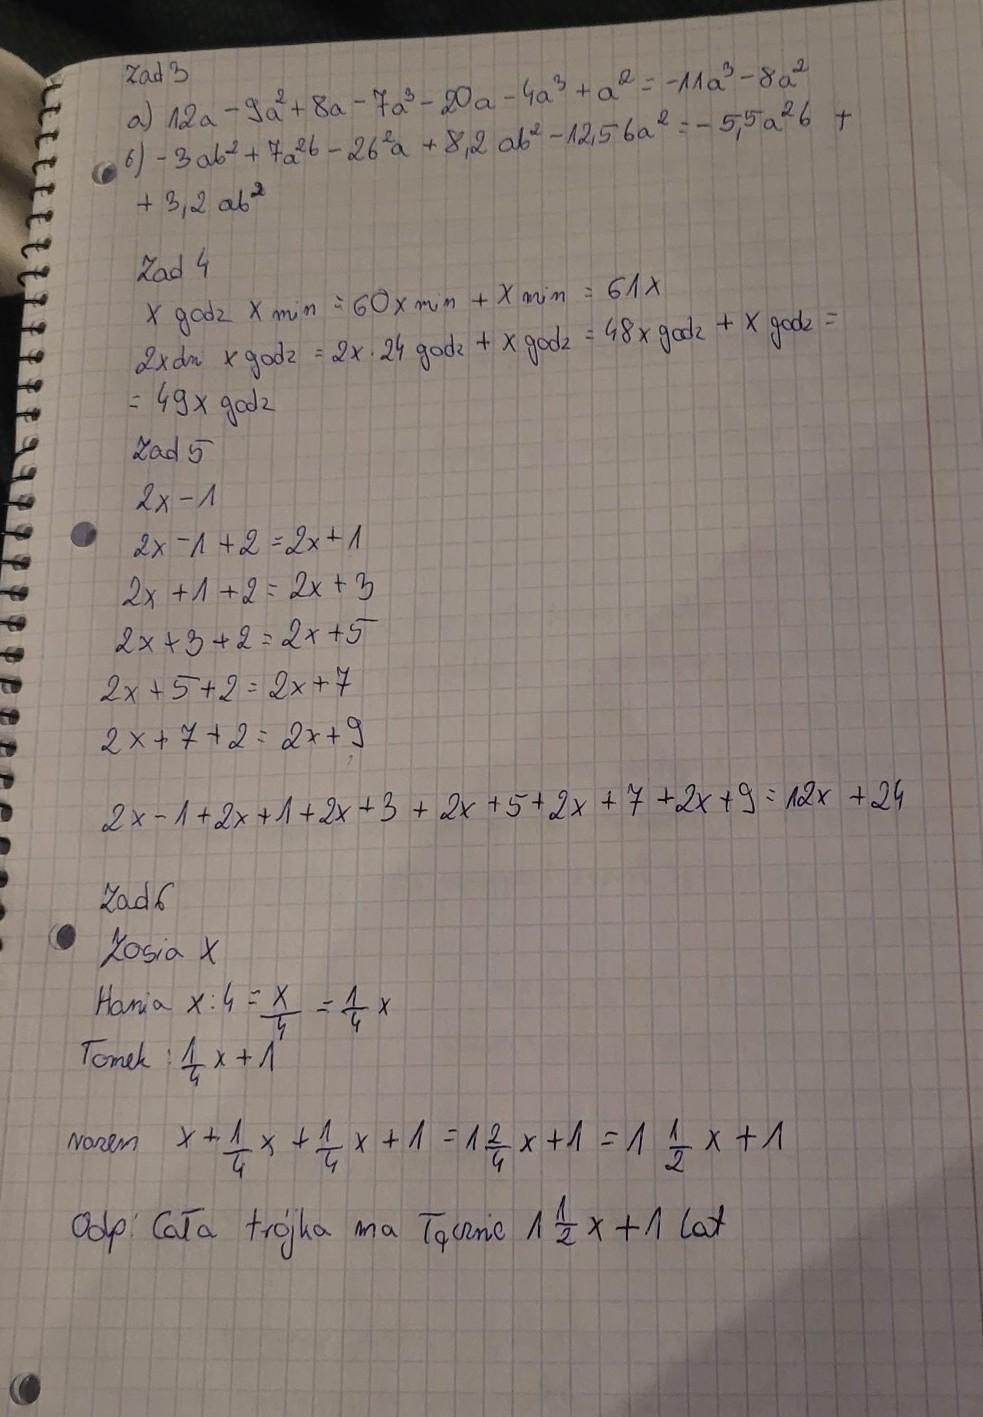 Zad 3
a) 12a - 9a² + 8a - 7a³ - 20a - 4a³ + a² = -11a³ - 8a²
b) - 3ab² + 7a²b - 2b²a + 8,2 ab² - 12,5ba² = - 5,5a²b +
+ 3,2 ab²
Zad 4
x godz x min = 60x min + x min = 61x
2x dn x godz = 2x · 24 godz + x godz = 48x godz + x godz =
= 49x godz
Zad 5
2x - 1
2x - 1 + 2 = 2x + 1
2x + 1 + 2 = 2x + 3
2x + 3 + 2 = 2x + 5
2x + 5 + 2 = 2x + 7
2x + 7 + 2 = 2x + 9
2x - 1 + 2x + 1 + 2x + 3 + 2x + 5 + 2x + 7 + 2x + 9 = 12x + 24
Zad 6
Zosia x
Hania x : 4 = x/4 = 1/4 x
Tomek : 1/4 x + 1
razem x + 1/4 x + 1/4 x + 1 = 1 2/4 x + 1 = 1 1/2 x + 1
Odp: Cała trójka ma łącznie 1 1/2 x + 1 lat